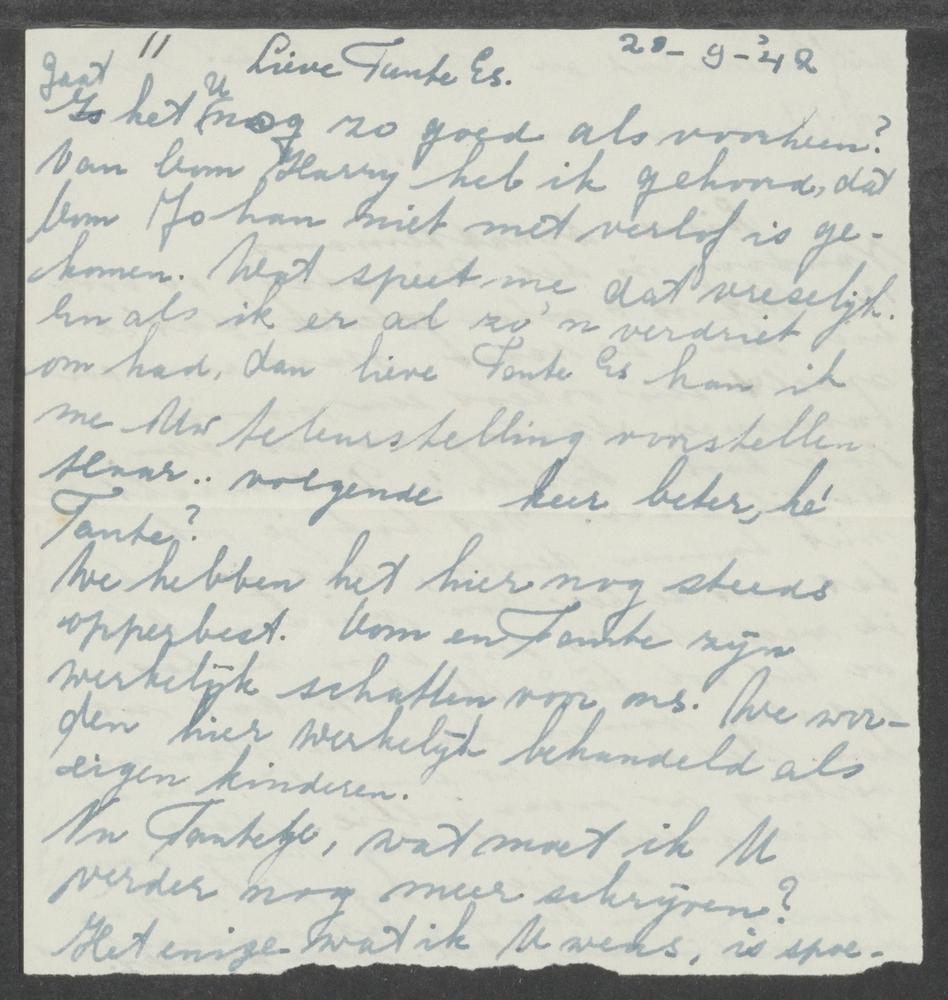 11 Lieve Tante Es. 20-9-'42
Gaat U
Is het nog zo goed als voorheen?
Van Oom Harry heb ik gehoord, dat
Oom Johan niet met verlof is ge-
komen. Wat speet me dat vreselijk.
En als ik er al zo'n verdriet
om had, dan lieve Tante Es kan ik
me Uw teleurstelling voorstellen
Maar.. volgende keer beter, hé
Tante?
We hebben het hier nog steeds
opperbest. Oom en Tante zijn
werkelijk schatten voor ons. We wor-
den hier werkelijk behandeld als
eigen kinderen.
Nu Tantetje, wat moet ik U
verder nog meer schrijven?
Het enige wat ik U wens, is spoe-